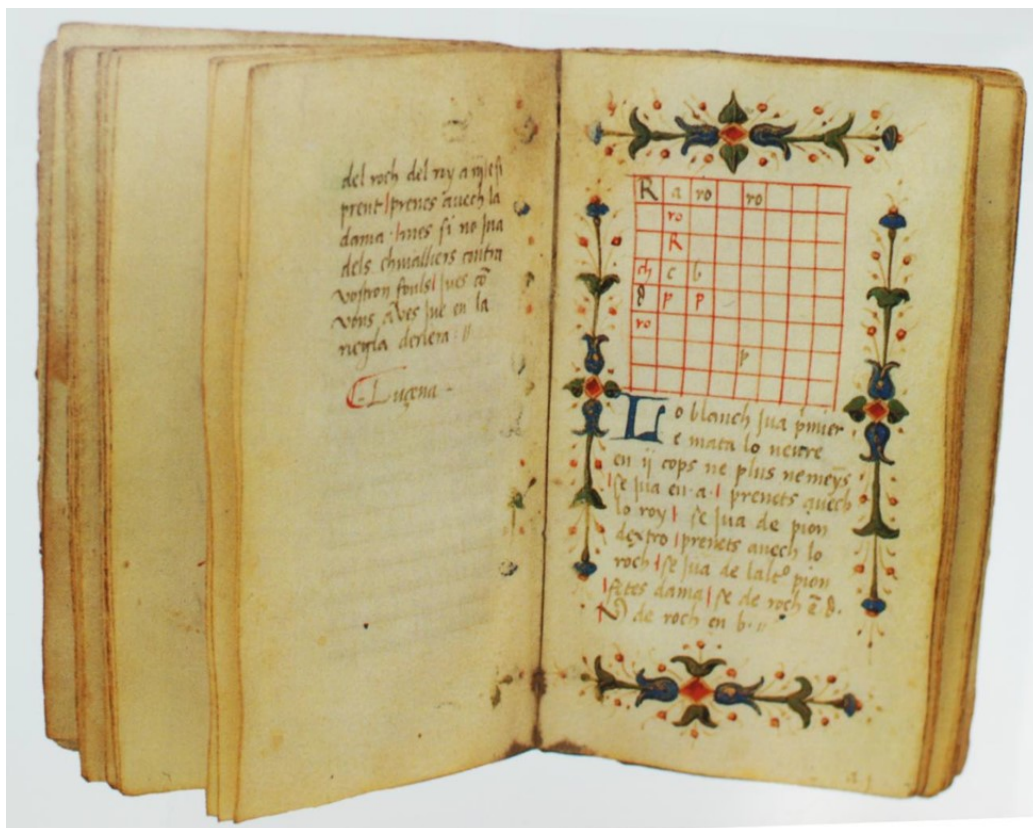 del roch del roy a
prent prenets auech la
dama mes si no jua
dels chivalliers contra
vostron fouls jues cō
vons aves jue en la
regla derrera
Luçena
R a ro ro
ro
R
ch c b
d p p
ro
p
Lo blanch jua pmier
e mata lo neutre
en ij cops ne plus nemeys
se jua en a prenets auech
lo roy se jua de pion
prenets auech lo
roch se jua de lalt° pion
fetes dama se de roch ē d.
de roch en b.